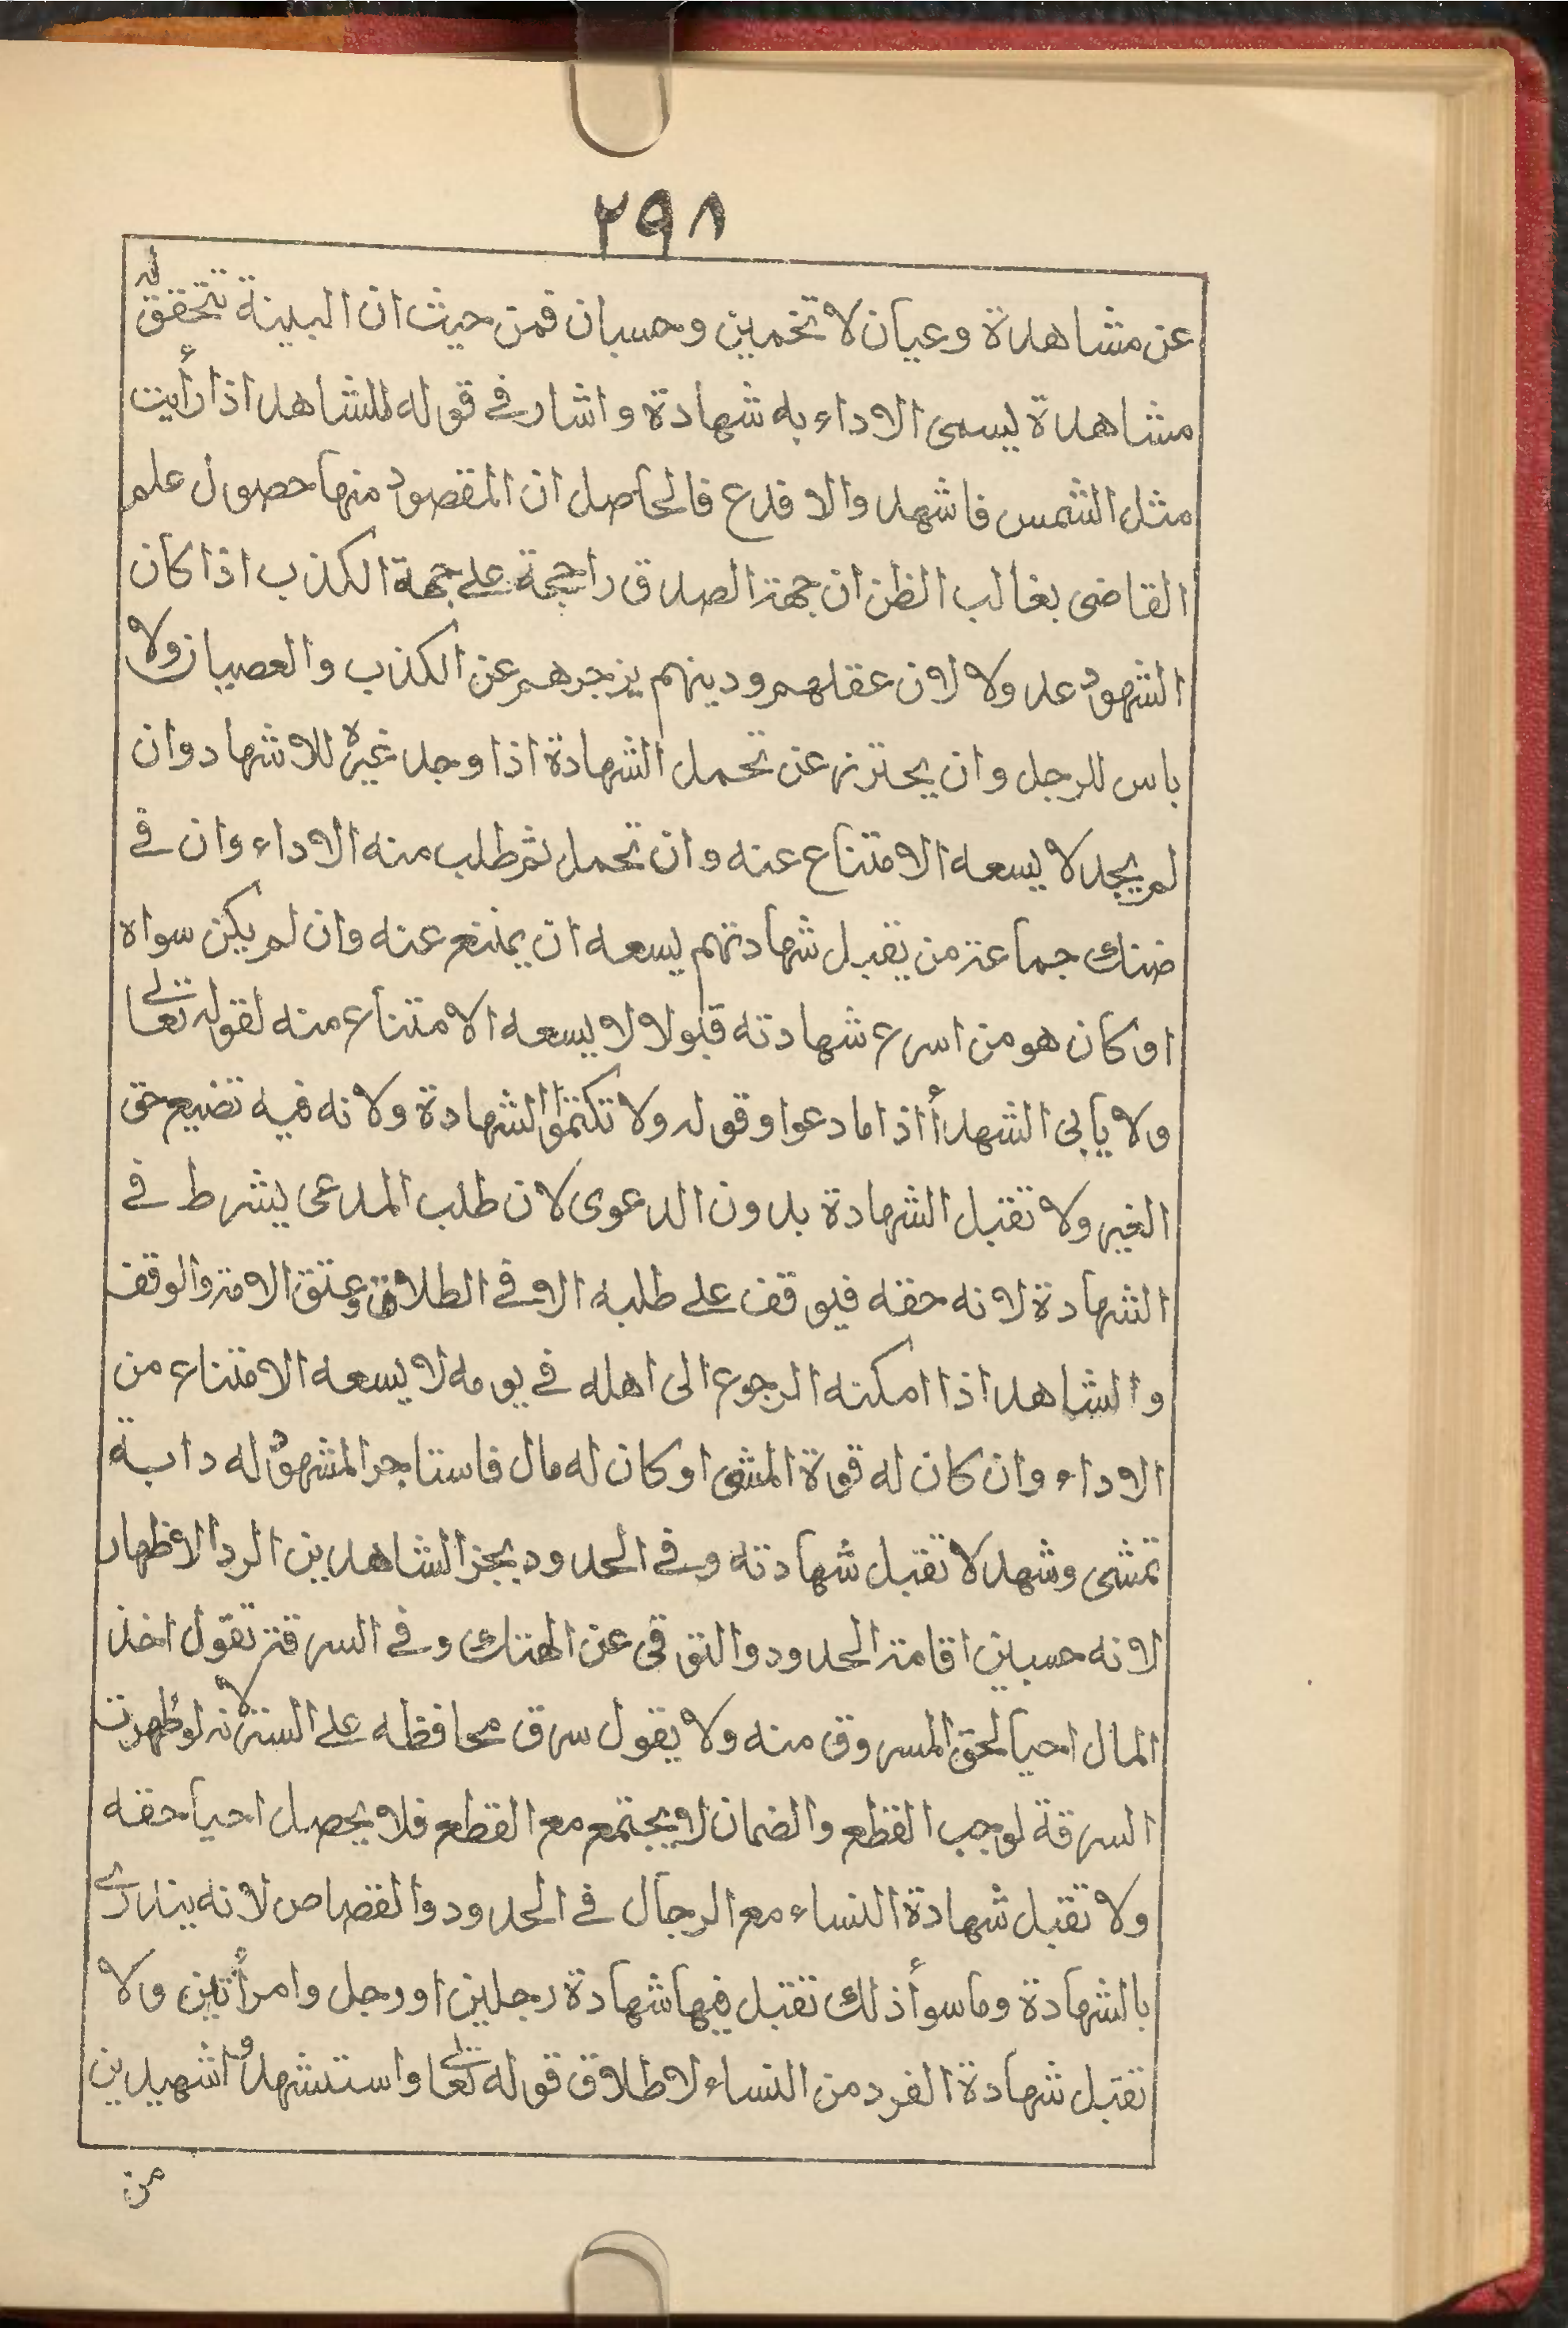 ٢٩٨
عن مشاهدة وعيان لا تخمين وحسبان فمن حيث ان البينة تتحقق له
مشاهدة يسمى الاداء به شهادة واشار في قوله للشاهد اذا رأيت
مثل الشمس فاشهد والا فدع فالحاصل ان المقصود منها حصول علم
القاضى بغالب الظن ان جهة الصدق راجحة على جهة الكذب اذا كان
الشهود عدولا لان عقلهم ودينهم يزجرهم عن الكذب والعصيان ولا
باس للرجل وان يحترز عن تحمل الشهادة اذا وجد غيره للاشهاد وان
لم يجد لا يسعه الامتناع عنه وان تحمل ثم طلب منه الاداء وان في
ضنك جماعة من يقبل شهادتهم يسعه ان يمتنع عنه وان لم يكن سواه
او كان هو من اسرع شهادته قبولا لا يسعه الامتناع منه لقوله تعالى
ولا يأبى الشهدأ اذا ما دعوا وقوله ولا تكتموا الشهادة ولانه فيه تضيع حق
الغير ولا تقبل الشهادة بدون الدعوى لان طلب المدعى يشرط في
الشهادة لانه حقه فيوقف على طلبه الا في الطلاق وعتق الامة والوقف
والشاهد اذا امكنه الرجوع الى اهله في يومه لا يسعه الامتناع من
الاداء وان كان له قوة المشى او كان له مال فاستاجر المشهود له دابة
تمشى وشهد لا تقبل شهادته وفي الحدود يجز الشاهدين الرد الاظهار
لانه حسبين اقامة الحدود والتوقى عن الهتك وفي السرقة تقول اخذ
المال احيأ لحق المسروق منه ولا يقول سرق محافظه على الستر لانه لو ظهرت
السرقة لوجب القطع والضمان لا يجتمع مع القطع فلا يحصل احيأ حقه
ولا تقبل شهادة النساء مع الرجال في الحدود والقصاص لانه يندارى
بالشهادة وما سوأ ذلك تقبل فيها شهادة رجلين او رجل وامرأتين ولا
تقبل شهادة الفرد من النساء لاطلاق قوله تعالى واستشهدوا شهيدين
من